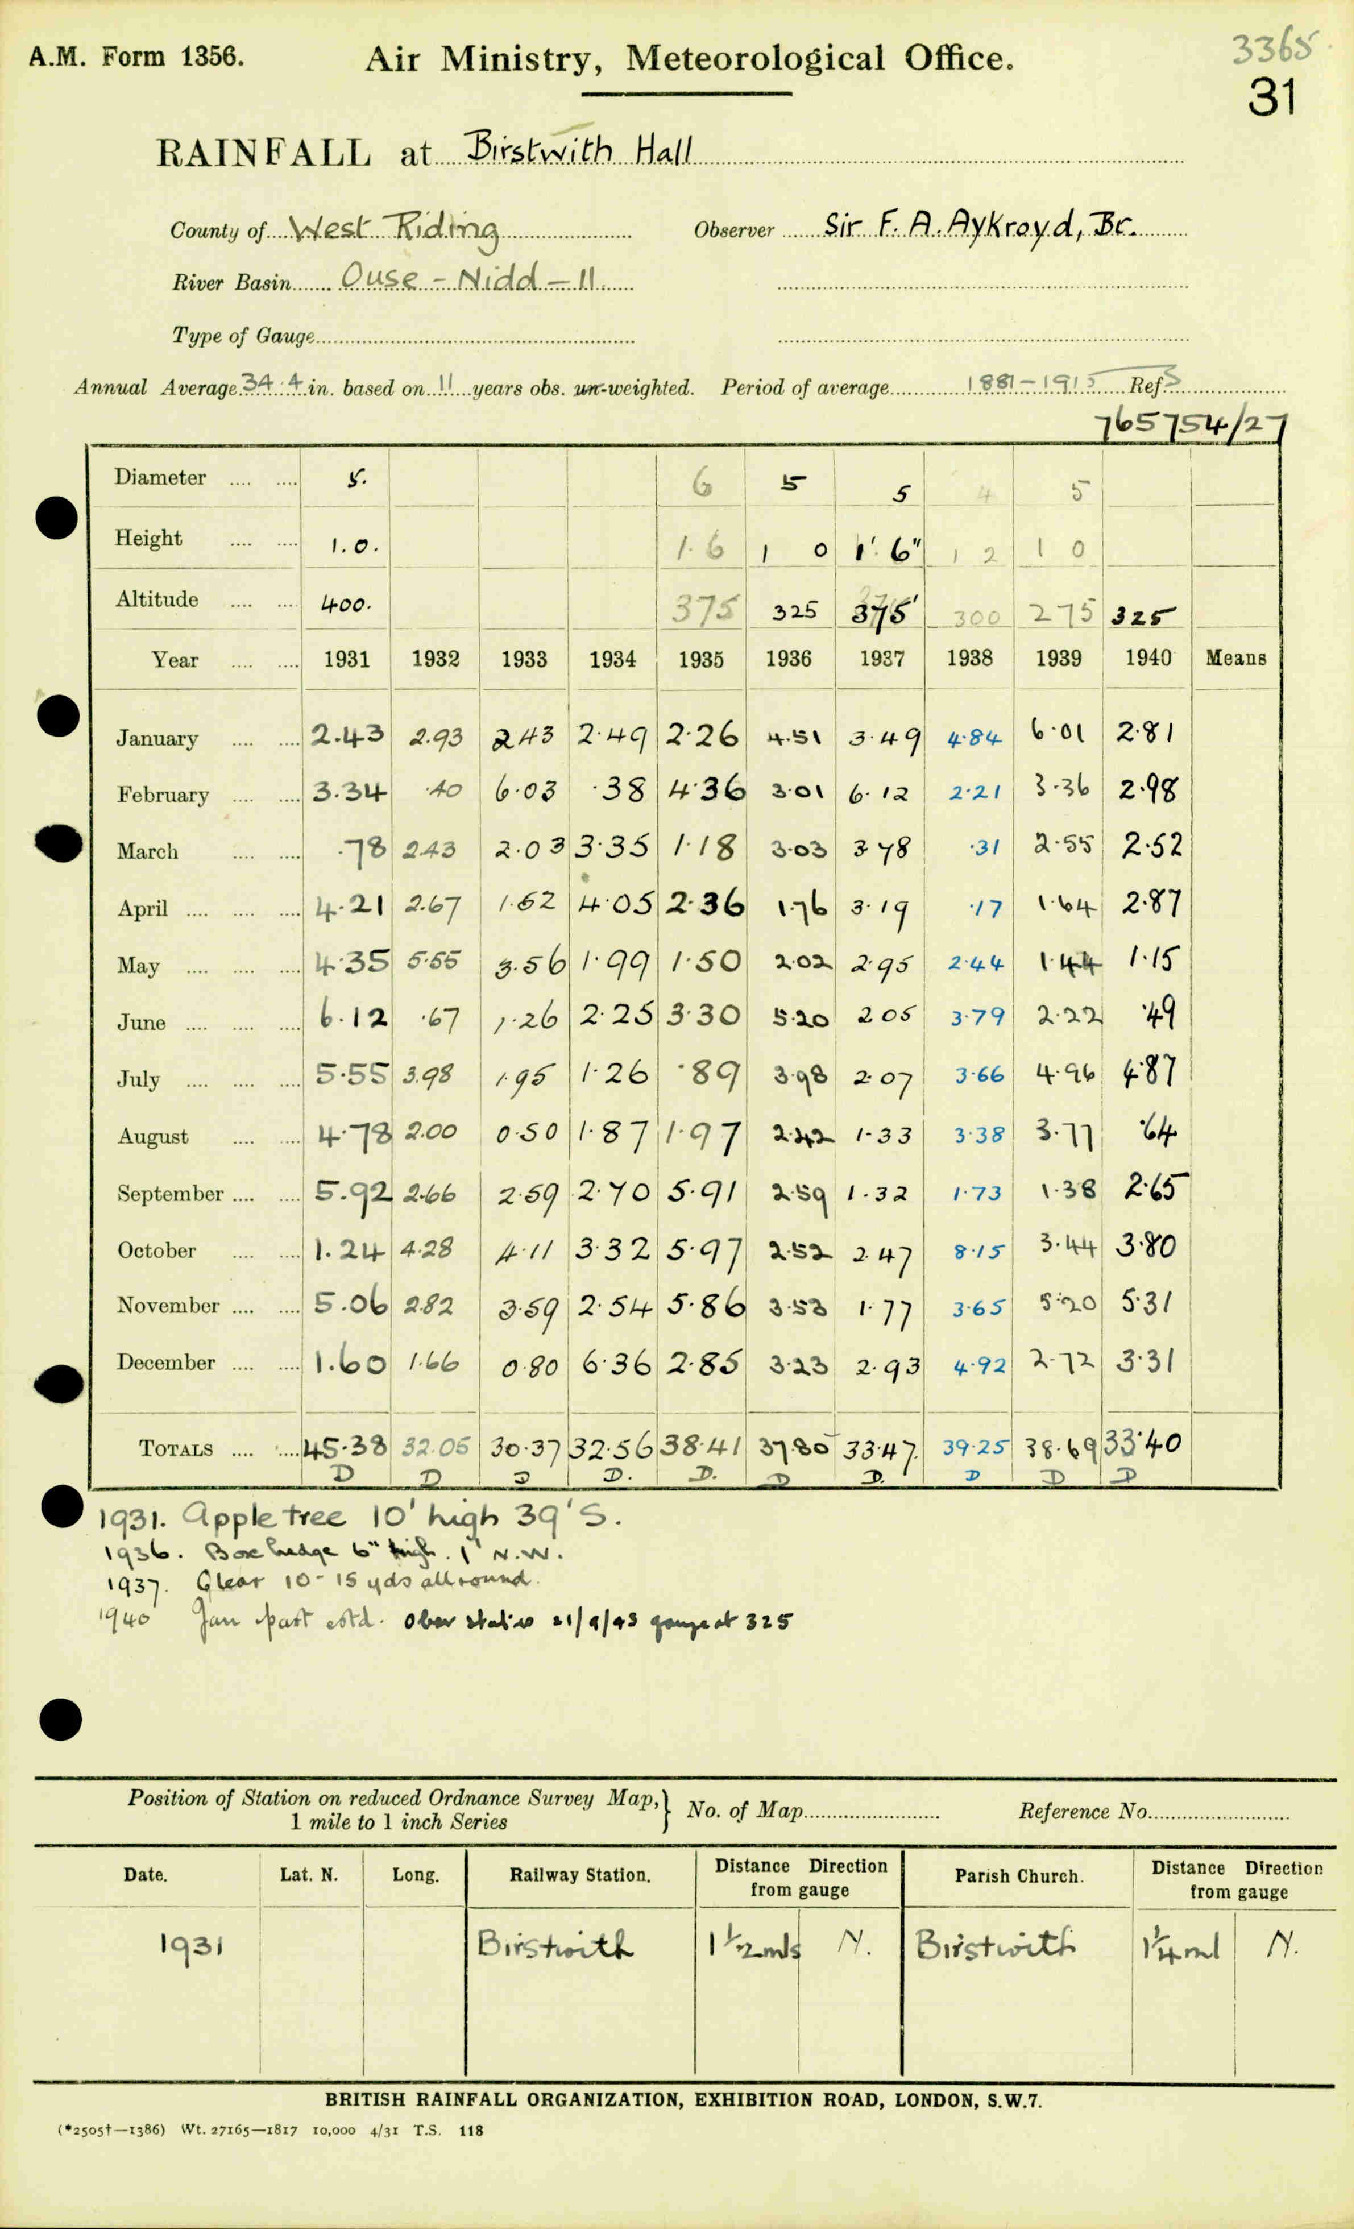 A.M. Form 1356. Air Ministry, Meteorological Office. 3365
31
RAINFALL at Birstwith Hall
County of West Riding Observer Sir F. A. Aykroyd, Br.
River Basin Ouse - Nidd - 11
Type of Gauge
Annual Average 34.4 in. based on 11 years obs. un-weighted. Period of average 1881-1915 Ref S
765754/27
Diameter 5. 6 5 5 4 5
Height 1.0. 1.6 1 0 1' 6" 1 2 1 0
Altitude 400. 375 325 375' 300 275 325
Year 1931 1932 1933 1934 1935 1936 1937 1938 1939 1940 Means
January 2.43 2.93 2.43 2.49 2.26 4.51 3.49 4.84 6.01 2.81
February 3.34 .40 6.03 .38 4.36 3.01 6.12 2.21 3.36 2.98
March .78 2.43 2.03 3.35 1.18 3.03 3.78 .31 2.55 2.52
April 4.21 2.67 1.52 4.05 2.36 1.76 3.19 .17 1.64 2.87
May 4.35 5.55 3.56 1.99 1.50 2.02 2.95 2.44 1.44 1.15
June 6.12 .67 1.26 2.25 3.30 5.20 2.05 3.79 2.22 .49
July 5.55 3.98 1.95 1.26 .89 3.98 2.07 3.66 4.96 4.87
August 4.78 2.00 0.50 1.87 1.97 2.42 1.33 3.38 3.77 .64
September 5.92 2.66 2.59 2.70 5.91 2.59 1.32 1.73 1.38 2.65
October 1.24 4.28 4.11 3.32 5.97 2.52 2.47 8.15 3.44 3.80
November 5.06 2.82 3.59 2.54 5.86 3.53 1.77 3.65 5.20 5.31
December 1.60 1.66 0.80 6.36 2.85 3.23 2.93 4.92 2.72 3.31
TOTALS 45.38 32.05 30.37 32.56 38.41 37.80 33.47. 39.25 38.69 33.40
D D D D. D. D D. D D D
1931. Apple tree 10' high 39' S.
1936. Box hedge 6" high. 1' N.W.
1937. Clear 10-15 yds all round.
1940 Jan part estd. Obsr states 21/9/43 gauge at 325
Position of Station on reduced Ordnance Survey Map, 1 mile to 1 inch Series } No. of Map Reference No.
Date. Lat. N. Long. Railway Station. Distance Direction from gauge Parish Church. Distance Direction from gauge
1931 Birstwith 1½ mls N. Birstwith 1¼ ml N.
BRITISH RAINFALL ORGANIZATION, EXHIBITION ROAD, LONDON, S.W.7.
(*2505†—1386) Wt. 27165—1817 10,000 4/31 T.S. 118